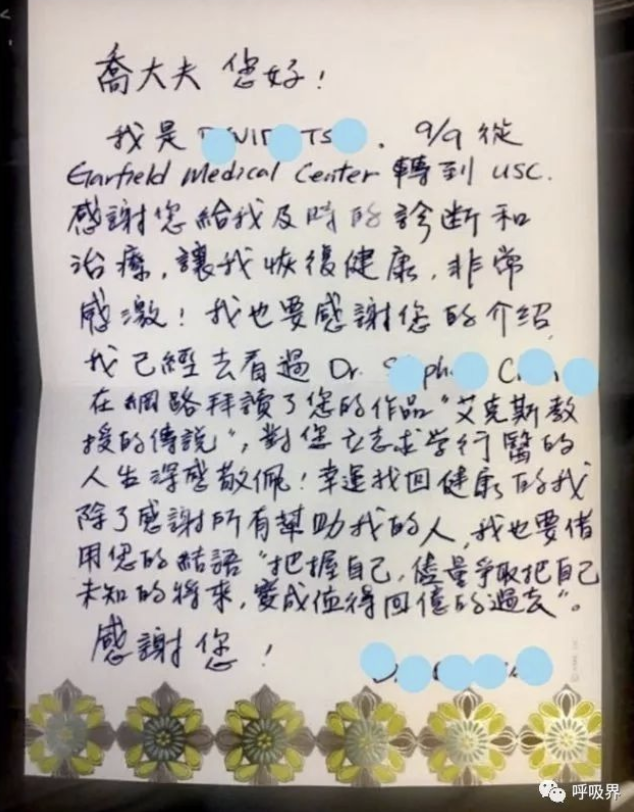 喬大夫 您好!
我是 . 9/9 從
Garfield Medical Center 轉到 USC.
感謝您給我及時的診断和
治療,讓我恢復健康,非常
感激!我也要感謝您的介紹,
我已經去看過 Dr.
在網路拜讀了您的作品"艾克斯教
授的傳說",對您立志求学行醫的
人生深感敬佩!幸運找回健康的我
除了感謝所有幫助我的人,我也要借
用您的結語"把握自己,儘量爭取把自己
未知的將來,變成值得回憶的過去"。
感謝您!
呼吸界